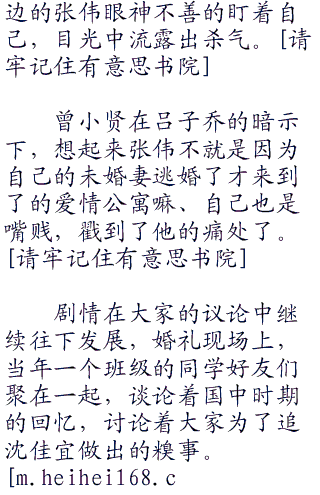 边的张伟眼神不善的盯着自
己，目光中流露出杀气。[请
牢记住有意思书院]
曾小贤在吕子乔的暗示
下，想起来张伟不就是因为
自己的未婚妻逃婚了才来到
了的爱情公寓嘛、自己也是
嘴贱，戳到了他的痛处了。
[请牢记住有意思书院]
剧情在大家的议论中继
续往下发展，婚礼现场上，
当年一个班级的同学好友们
聚在一起，谈论着国中时期
的回忆，讨论着大家为了追
沈佳宜做出的糗事。
[m.heihei168.c